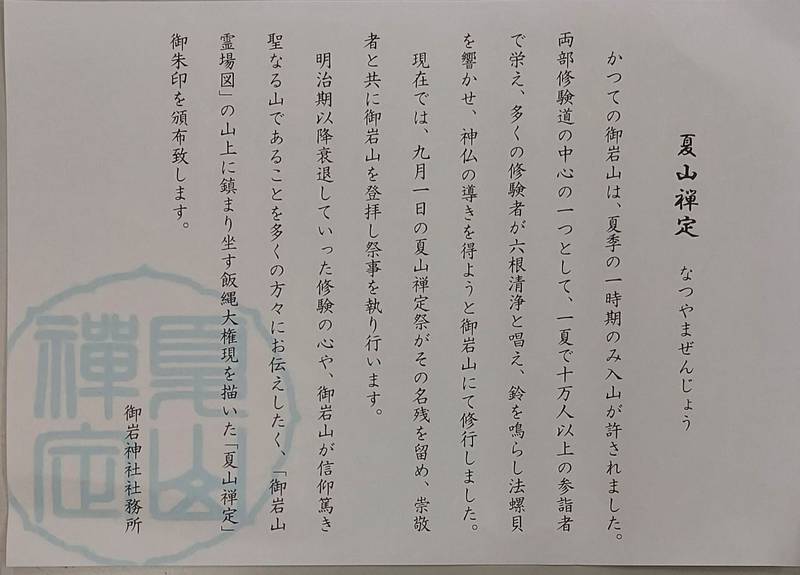 夏山禅定　なつやまぜんじょう
かつての御岩山は、夏季の一時期のみ入山が許されました。
両部修験道の中心の一つとして、一夏で十万人以上の参詣者
で栄え、多くの修験者が六根清浄と唱え、鈴を鳴らし法螺貝
を響かせ、神仏の導きを得ようと御岩山にて修行しました。
現在では、九月一日の夏山禅定祭がその名残を留め、崇敬
者と共に御岩山を登拝し祭事を執り行います。
明治期以降衰退していった修験の心や、御岩山が信仰篤き
聖なる山であることを多くの方々にお伝えしたく、「御岩山
霊場図」の山上に鎮まり坐す飯縄大権現を描いた「夏山禅定」
御朱印を頒布致します。
御岩神社社務所
夏山
禪定